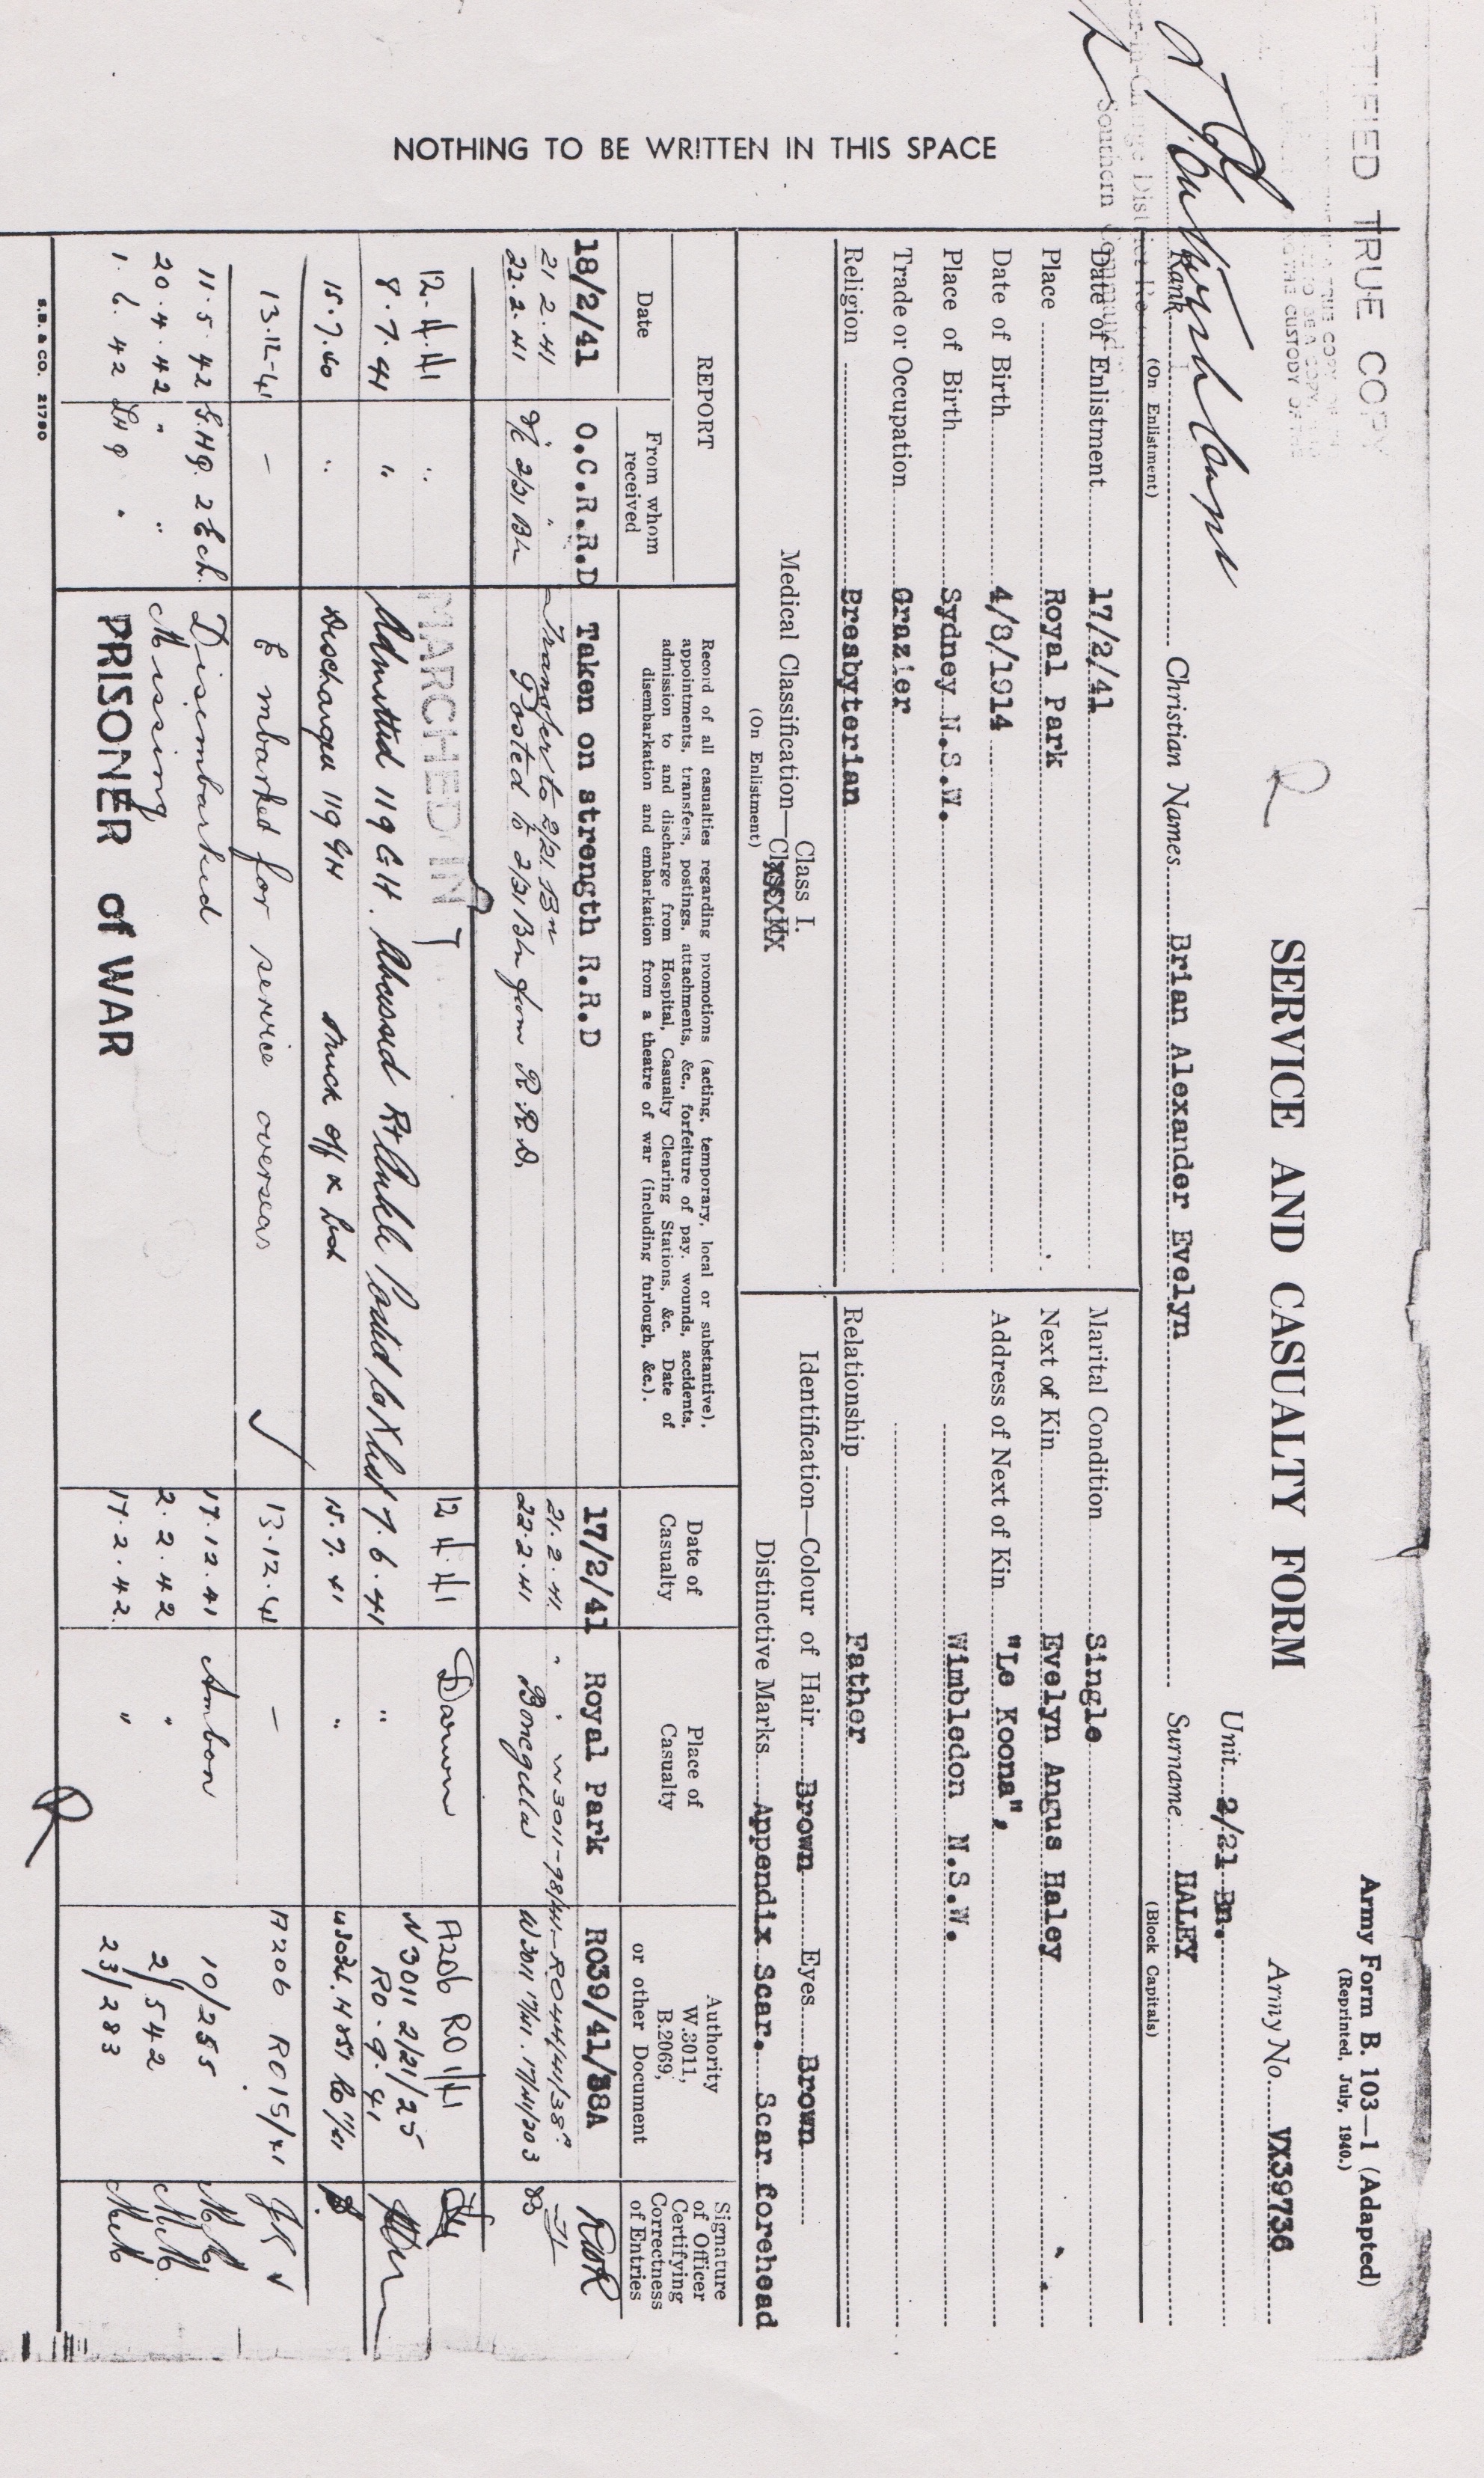 Army Form B. 103—1 (Adapted)
(Reprinted, July, 1940.)
TIFIED TRUE COPY
SERVICE AND CASUALTY FORM
Army No. VX39736
Unit 2/21 Bn.
Rank
(On Enlistment)
Christian Names Brian Alexander Evelyn
Surname HALEY
(Block Capitals)
Southern Command
Date of Enlistment 17/2/41
Place Royal Park
Date of Birth 4/8/1914
Place of Birth Sydney N.S.W.
Trade or Occupation Grazier
Religion Presbyterian
Marital Condition Single
Next of Kin Evelyn Angus Haley
Address of Next of Kin "Le Koona",
Wimbledon N.S.W.
Relationship Father
Medical Classification—Class I.
(On Enlistment)
Identification—Colour of Hair Brown Eyes Brown
Distinctive Marks Appendix Scar. Scar forehead
REPORT
Date
From whom received
Record of all casualties regarding promotions (acting, temporary, local or substantive), appointments, transfers, postings, attachments, &c., forfeiture of pay, wounds, accidents, admission to and discharge from Hospital, Casualty Clearing Stations, &c. Date of disembarkation and embarkation from a theatre of war (including furlough, &c.).
Date of Casualty
Place of Casualty
Authority W.3011, B.2069, or other Document
Signature of Officer Certifying Correctness of Entries
18/2/41 O.C.R.R.D Taken on strength R.R.D 17/2/41 Royal Park RO39/41/38A
21 2.41 " Transfer to 2/21 Bn 21.2.41 " "
22.2.41 2/21 Bn Posted to 2/21 Bn from R.R.D. 22.2.41 Bonegilla
12.4.41 " MARCHED IN 12 4.41 Darwin A206
8.7.41 " Admitted 119 G.H. Abscessed Rt Ankle Posted to X list 7.6.41 " W3011 2/21/25 RO.9.41
15.7.40 " Discharged 119 GH Struck off X list 15.7.41 "
13.12.41 – Embarked for service overseas 13.12.41 – A206 RO15/41 JK
11.5.42 L.HQ. 2 Ech. Disembarked 17.12.41 Ambon 10/255
20.4.42 " " Missing 2.2.42 " 2/542
1.6.42 LHQ " PRISONER of WAR 17.2.42. " 23/283
NOTHING TO BE WRITTEN IN THIS SPACE
S.B. & CO. 21790